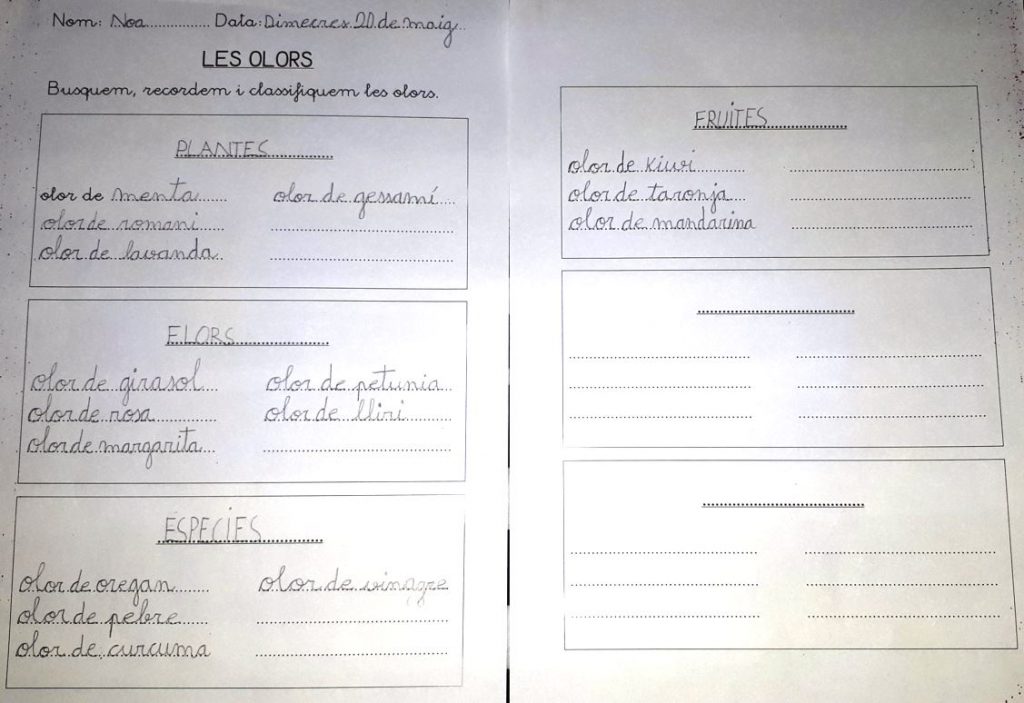 Nom: Noa Data: Dimecres 20 de maig
LES OLORS
Busquem, recordem i classifiquem les olors.
PLANTES
olor de menta olor de gessamí
olor de romani
olor de lavanda
FLORS
olor de girasol olor de petunia
olor de rosa olor de lliri
olor de margarita
ESPECIES
olor de oregan olor de vinagre
olor de pebre
olor de curcuma
FRUITES
olor de kiwi
olor de taronja
olor de mandarina